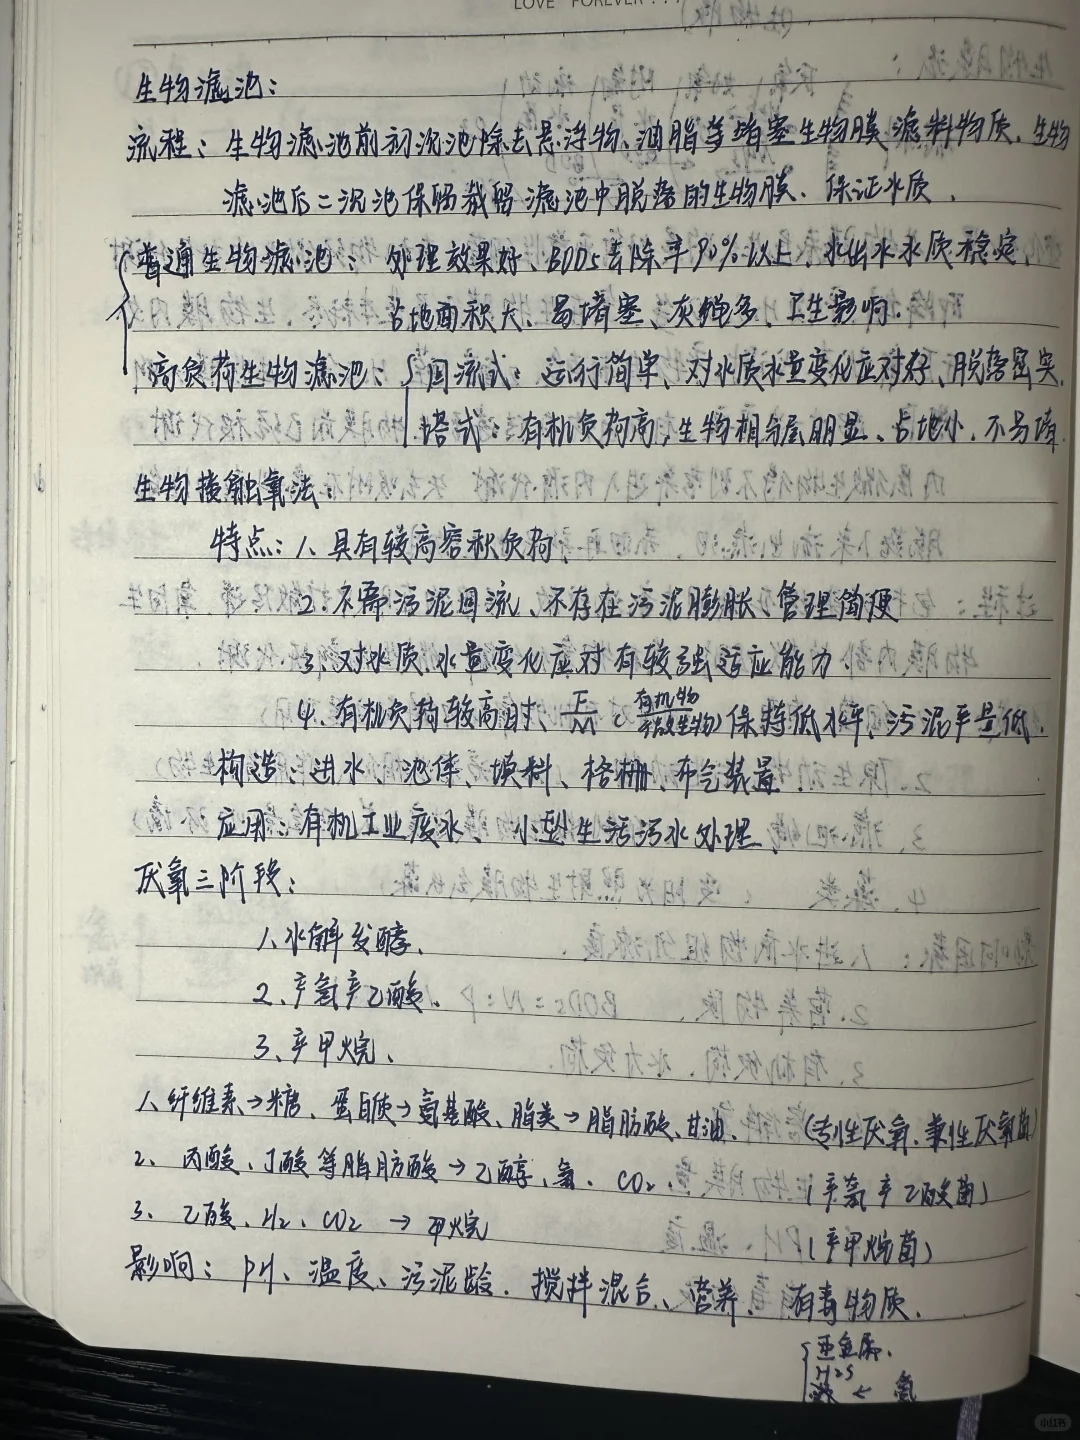 LOVE FOREVER...
生物滤池：
流程：生物滤池前初沉池除去悬浮物、油脂等堵塞生物膜滤料物质.生物
滤池后二沉池保留截留滤池中脱落的生物膜、保证水质.
普通生物滤池：处理效果好、BOD5去除率90%以上、出水水质稳定、
占地面积大、易堵塞、灰蝇多、卫生影响.
高负荷生物滤池：回流式：运行简单、对水质水量变化应对好、脱落密实
塔式：有机负荷高,生物相分层明显、占地小.不易堵.
生物接触氧法：
特点：1、具有较高容积负荷
2.不需污泥回流、不存在污泥膨胀、管理简便
3、对水质.水量变化应对有较强适应能力
4.有机负荷较高时、F/M(有机物/微生物)保持低水平,污泥产量低.
构造：进水、池体、填料、格栅、布气装置.
应用：有机工业废水、小型生活污水处理.
厌氧三阶段：
1.水解发酵、
2、产氢产乙酸、
3、产甲烷、
1、纤维素→糖、蛋白质→氨基酸、脂类→脂肪酸、甘油、(专性厌氧.兼性厌氧菌)
2、丙酸、丁酸等脂肪酸→乙醇、氢、CO2.(产氢产乙酸菌)
3、乙酸、H2、CO2 → 甲烷 (产甲烷菌)
影响：PH、温度、污泥龄.搅拌混合、营养.有毒物质.
重金属.
H2S
← 氨
小红书